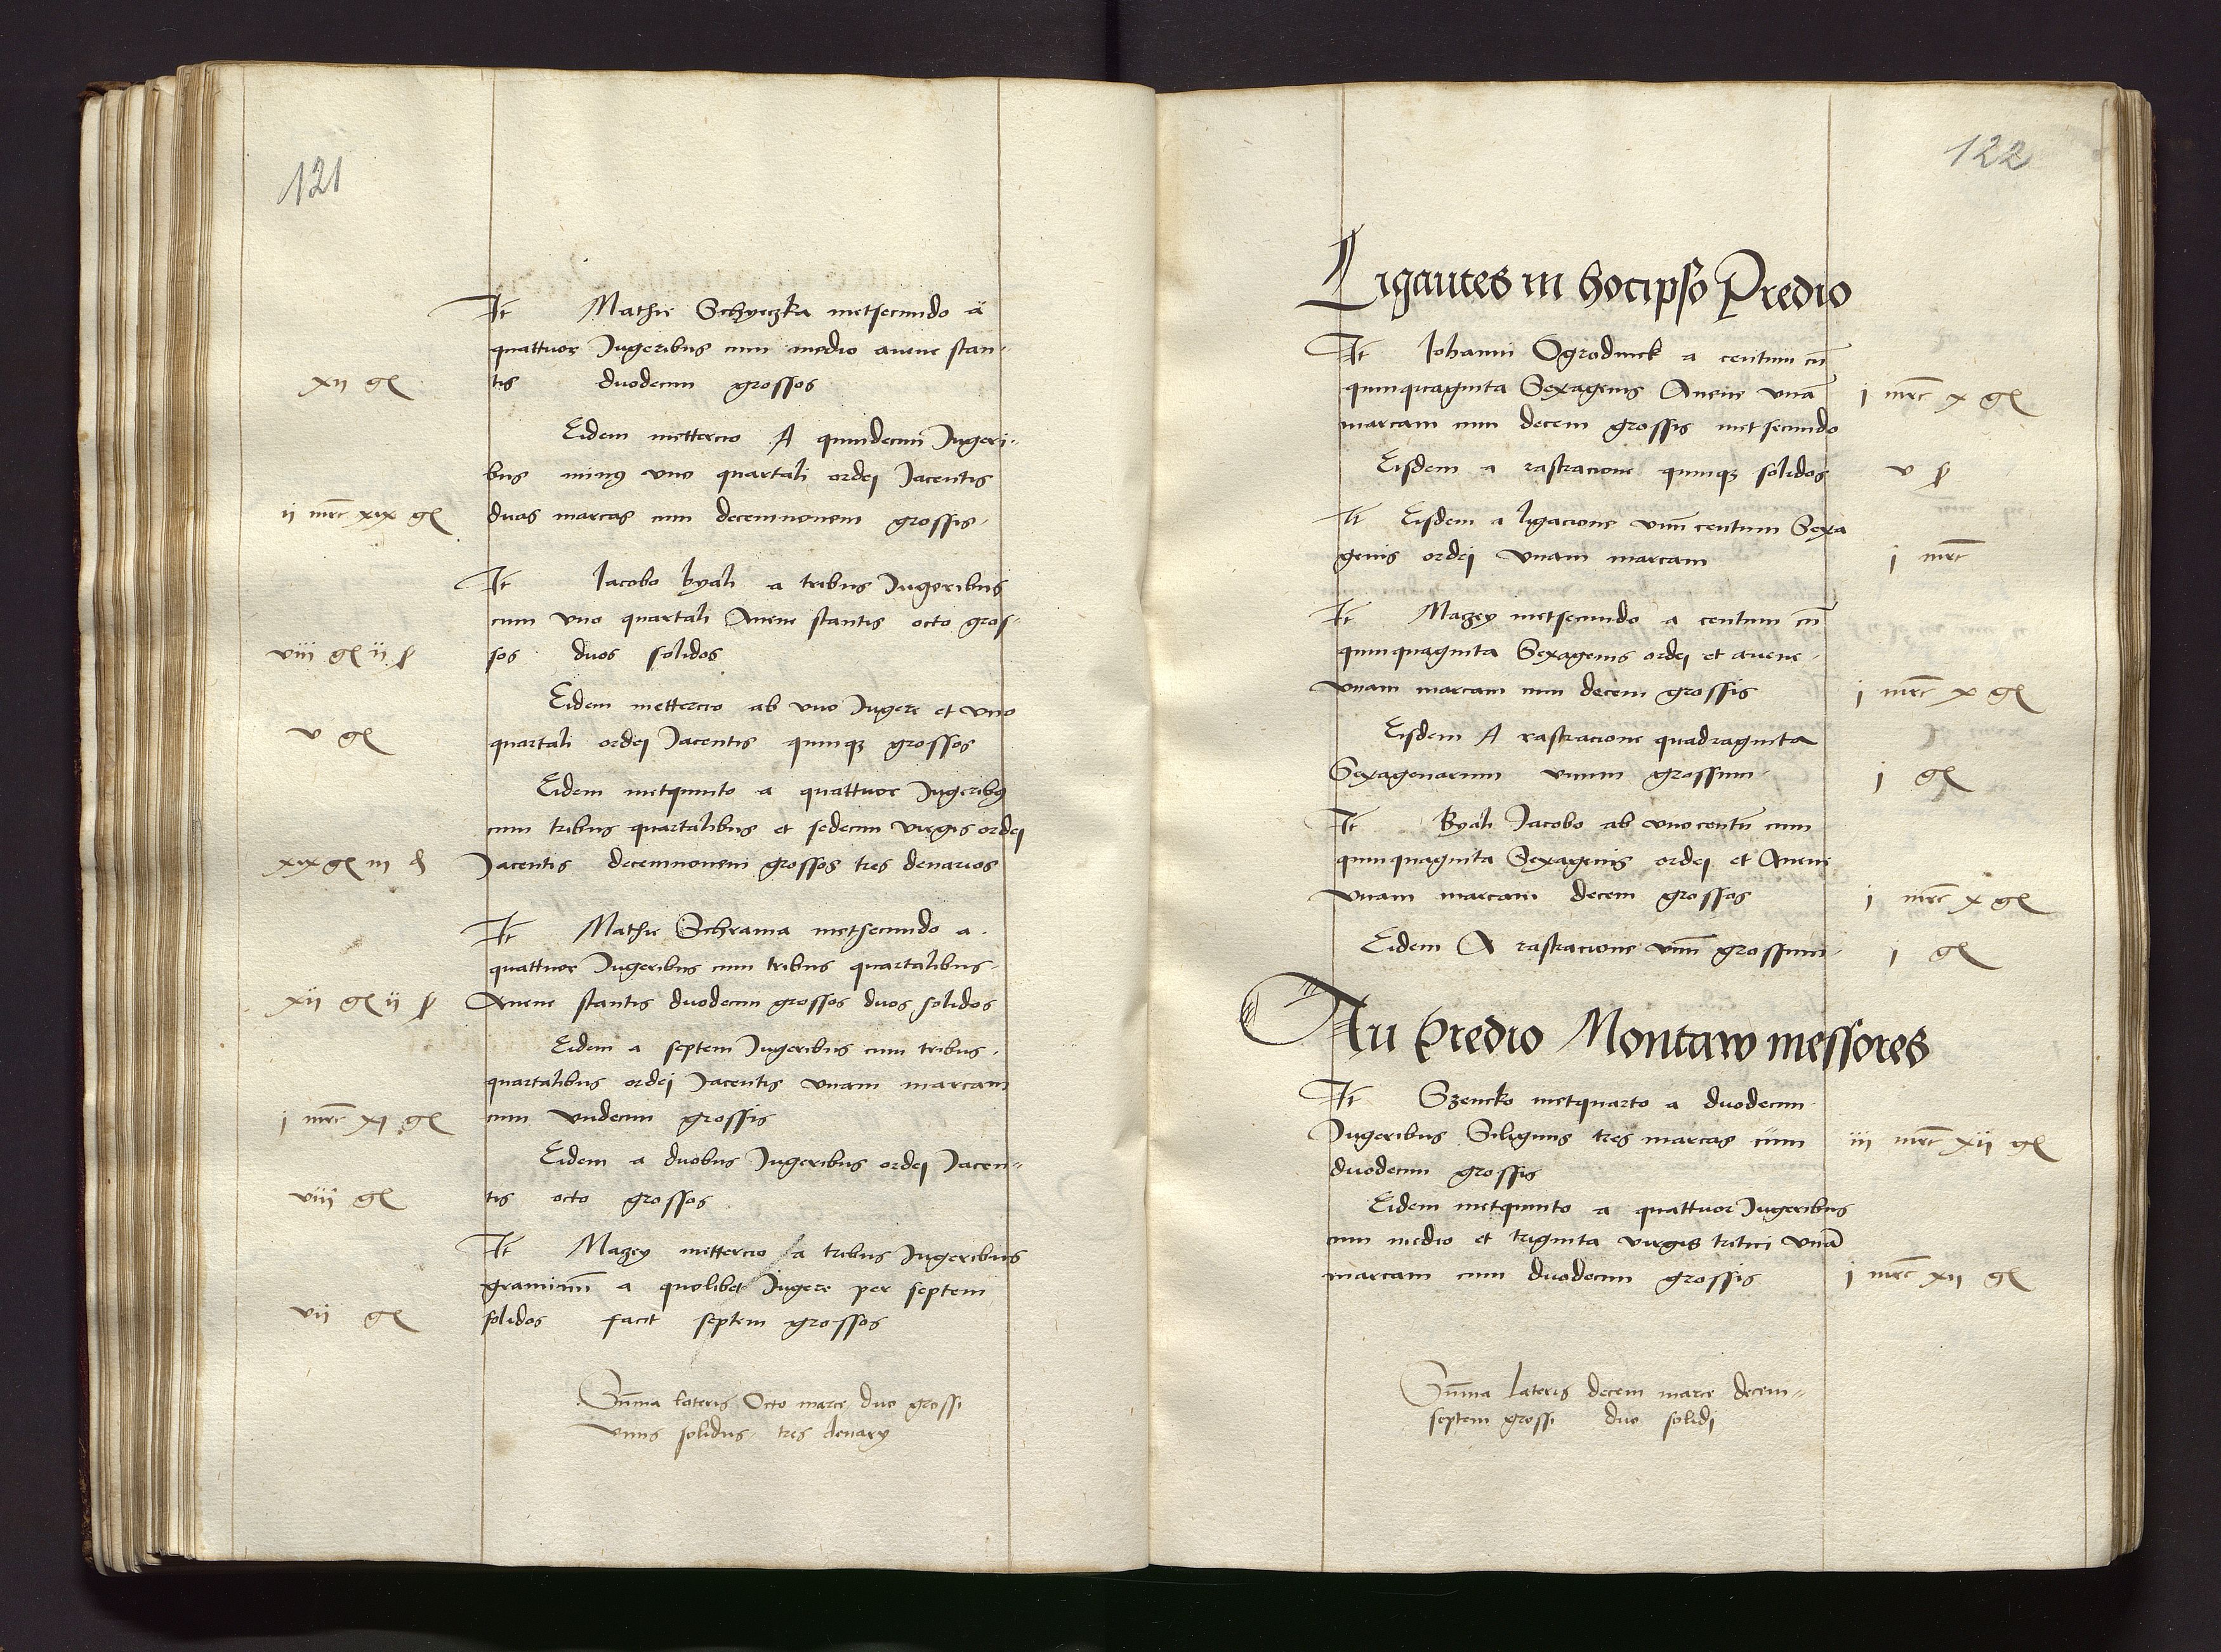 121
It Mathie Schyeczka metsecundo a
quattuor Jugeribus cum medio auene stan-
xii gl tis duodecim grossos
Eidem mettercio A quindecim Jugeri-
bus minus vno quartali ordej Jacentis
ii mrc xix gl duas marcas cum decemnouem grossis
It Jacobo byali a tribus Jugeribus
cum vno quartali Auene stantis octo gros-
viii gl ii ß sos duos solidos
Eidem mettercio ab vno Jugere et vno
v gl quartali ordej Jacentis quinque grossos
Eidem metquinto a quattuor Jugeribus
cum tribus quartalibus et sedecim virgis ordej
xix gl iii d Jacentis decemnouem grossos tres denarios
It Mathie Schrama metsecundo a
quattuor Jugeribus cum tribus quartalibus
xii gl ii ß Auene stantis duodecim grossos duos solidos
Eidem a septem Jugeribus cum tribus
quartalibus ordej Jacentis vnam marcam
j mrc xj gl cum vndecim grossis
Eidem a duobus Jugeribus ordej Jacen-
viii gl tis octo grossos
It Mazey mettercio a tribus Jugeribus
graminum a quolibet Jugere per septem
vii gl solidos facit septem grossos
Summa lateris Octo marce duo grossi
vnus solidus tres denary
122
Ligantes in hocipso Predio
It Johanni Ogrodnick a centum cum
quinquaginta Sexagenis Auene vnam j mrc x gl
marcam cum decem grossis metsecundo
Eisdem a rastracione quinque solidos v ß
It Eisdem a ligacione vnum centum Sexa
genis ordej vnam marcam j mrc
It Mazey metsecundo a centum cum
quinquaginta Sexagenis ordej et auene
vnam marcam cum decem grossis j mrc x gl
Eisdem A rastracione quadraginta
Sexagenarum vnum grossum j gl
It Byali Jacobo ab vno centum cum
quinquaginta Sexagenis ordej et Auene
vnam marcam decem grossos j mrc x gl
Eidem A rastracione vnum grossum j gl
In predio Montaw messores
It Szencko metquarto a duodecim
Jugeribus Siliginis tres marcas cum iii mrc xii gl
duodecim grossis
Eidem metquinto a quattuor Jugeribus
cum medio et triginta virgis tritici vnam
marcam cum duodecim grossis j mrc xii gl
Summa lateris decem marce decem-
septem grossi duo solidj